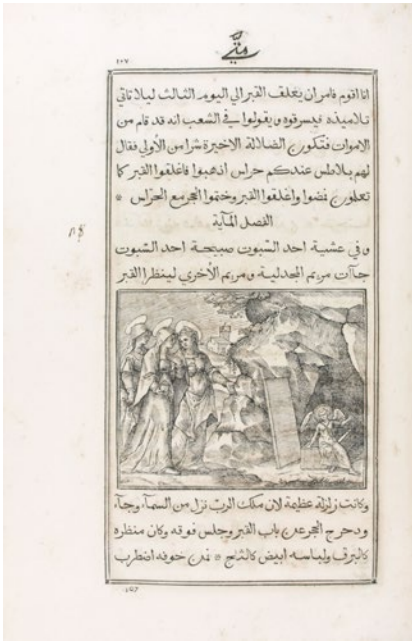 متَّى
١٢٧
انا اقوم فامر ان يغلق القبر الي اليوم الثالث ليلا تاتي
تلاميذه فيسرقوه ويقولوا في الشعب انه قد قام من
الاموات فتكون الضلالة الاخيرة شرا من الأولي فقال
لهم بيلاطس عندكم حراس اذهبوا فاغلقوا القبر كما
تعلمون فمضوا واغلقوا القبر وختموا الحجر مع الحرّاس *
الفصل المآية
وفي عشية احد السّبوت صبيحة احد السّبوت
جآات مريم المجدلية ومريم الأخري لينظرا القبر
وكانت زلزلة عظيمة لان ملاك الربّ نزل من السمآء وجآ
ودحرج الحجر عن باب القبر وجلس فوقه وكان منظره
كالبرق ولباسه ابيض كالثلج * فمن خوفه اضطرب